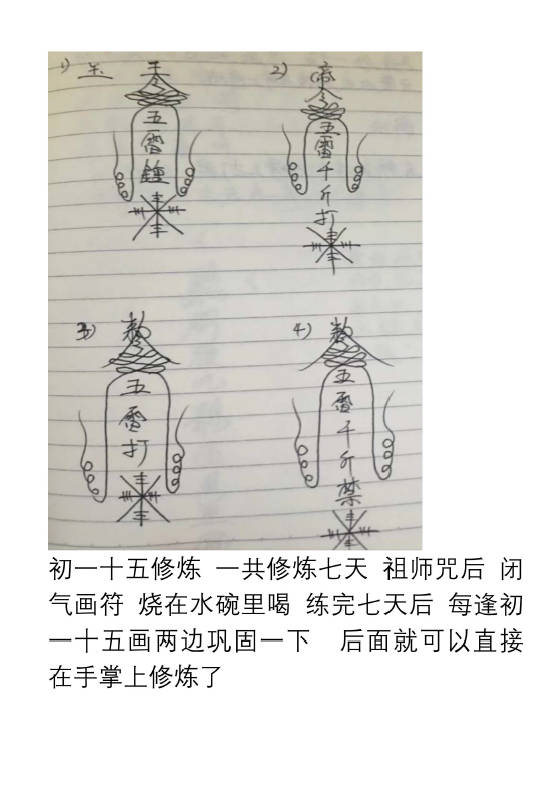 1)
五雷
2)
帝令
五雷千斤打
3)
五雷打
4)
五雷千斤禁
初一十五修炼 一共修炼七天 祖师咒后 闭
气画符 烧在水碗里喝 练完七天后 每逢初
一十五画两边巩固一下 后面就可以直接
在手掌上修炼了